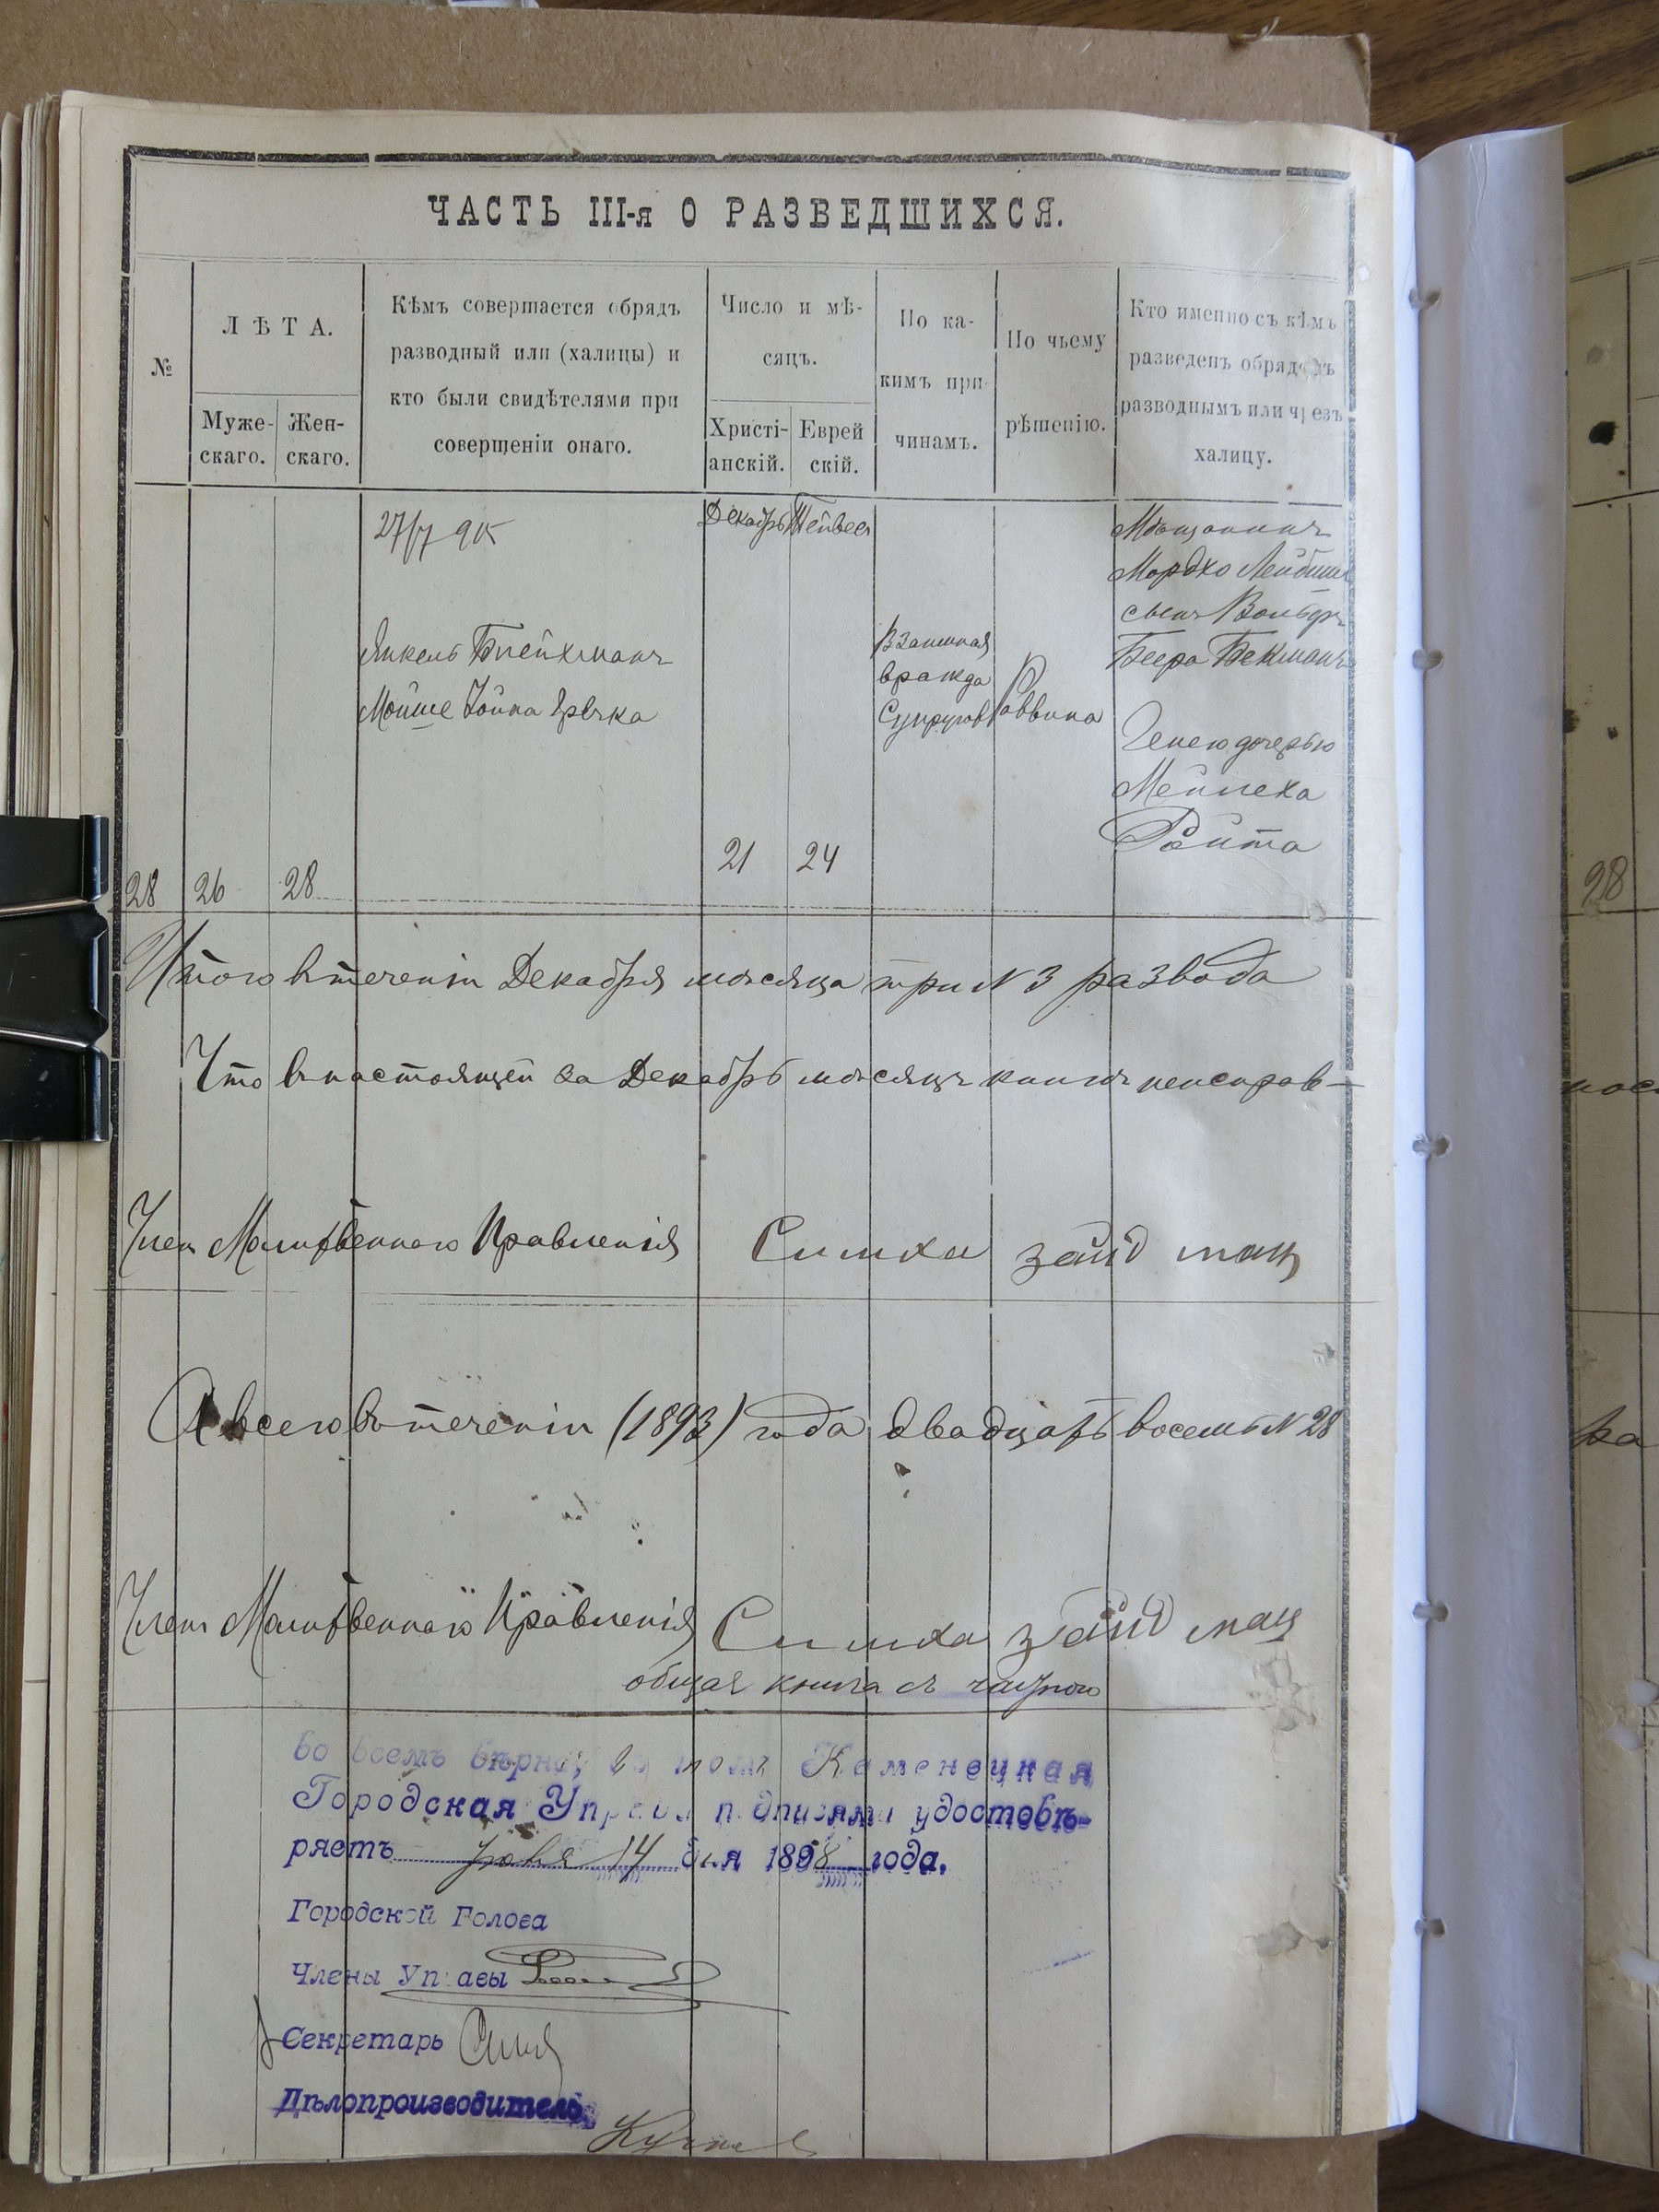 ЧАСТЬ III-я О РАЗВЕДШИХСЯ.
№
ЛѢТА.
Муже-
скаго.
Жен-
скаго.
Кѣмъ совершается обрядъ
разводный или (халицы) и
кто были свидѣтелями при
совершеніи онаго.
Число и мѣ-
сяцъ.
Христі-
анскій.
Еврей
скій.
По ка-
кимъ при-
чинамъ.
По чьему
рѣшенію.
Кто именно съ кѣмъ
разведенъ обрядомъ
разводнымъ или чрезъ
халицу.
28
26
28
27/7 905
Янкель Блейхманъ
Мойше Хойна
Декабрь
21
Тейвес
24
Взаимная
вражда
Супругов
Раввина
Мѣщанинъ
Мордко Лейбиш
сынъ Вольфъ
Беера Бекманъ
Генею дочерью
Мейлеха
Ройта
Итого втеченіи Декабря мѣсяца три N 3 развода
Что внастоящей за Декабрь мѣсяцъ книги неисправ-
Член Молитвеннаго Правленія Симха зайдман
А всего втеченіи (1893) года двадцать восемь N 28
Членъ Молитвеннаго Правленія Симха зайдман
общая книга съ
во всемъ вѣрна, въ томъ Каменецкая
Городская Управа подписями удостовѣ-
ряетъ 14 дня 1898 года.
Городской Голова
Члены Управы
Секретарь
Дѣлопроизводитель
28